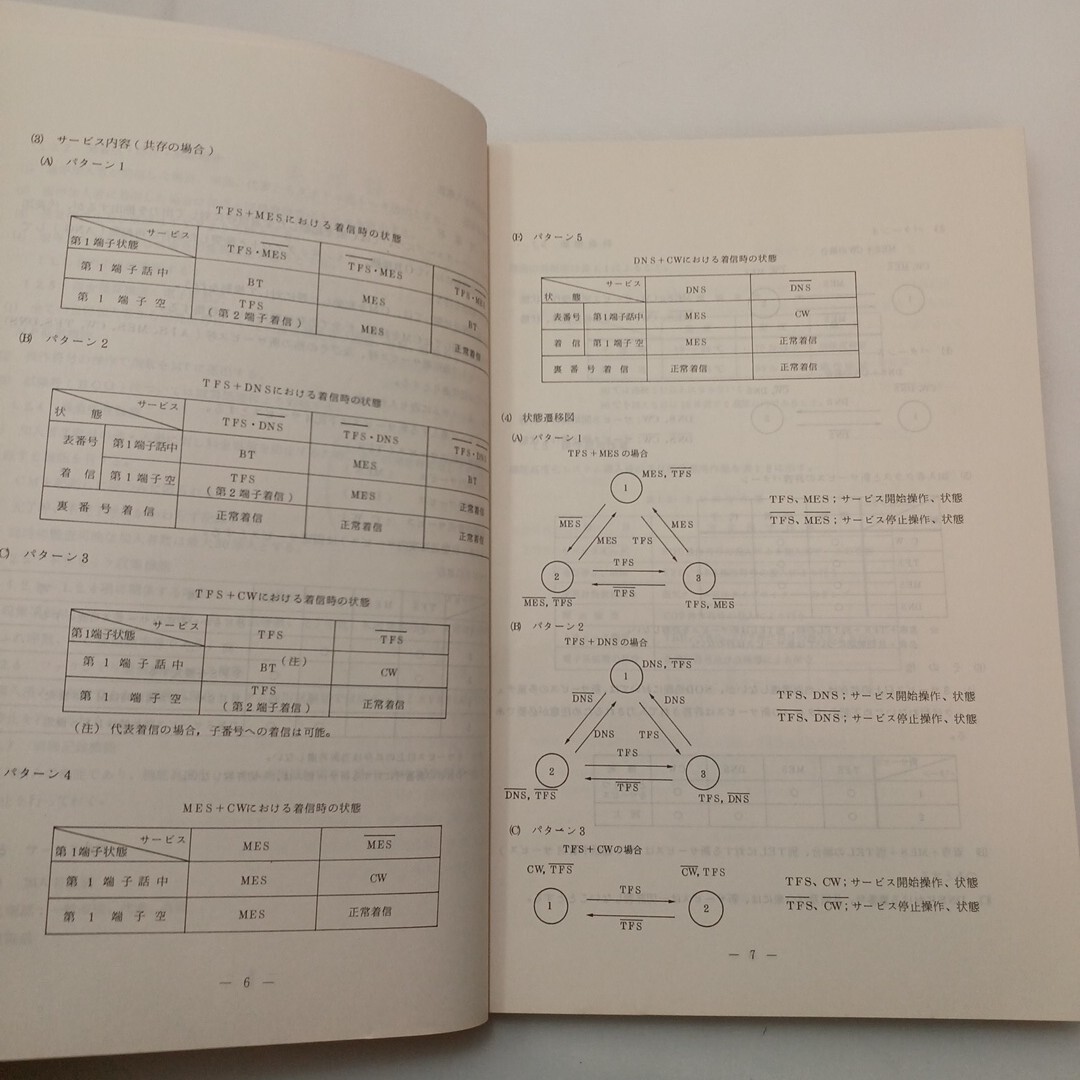 (3) サービス内容(共存の場合)
(A) パターン1
TFS+MESにおける着信時の状態
サービス
第1端子状態
TFS・M̅E̅S̅
T̅F̅S̅・MES
T̅F̅S̅・M̅E̅S̅
第1端子話中
BT
MES
BT
第1端子空
TFS
(第2端子着信)
MES
正常着信
(B) パターン2
TFS+DNSにおける着信時の状態
サービス
状態
TFS・D̅N̅S̅
T̅F̅S̅・DNS
T̅F̅S̅・D̅N̅S̅
表番号
着信
第1端子話中
BT
MES
BT
第1端子空
TFS
(第2端子着信)
MES
正常着信
裏番号着信
正常着信
正常着信
正常着信
C) パターン3
TFS+CWにおける着信時の状態
サービス
第1端子状態
TFS
T̅F̅S̅
第1端子話中
BT(注)
CW
第1端子空
TFS
(第2端子着信)
正常着信
(注) 代表着信の場合,子番号への着信は可能。
パターン4
MES+CWにおける着信時の状態
サービス
第1端子状態
MES
M̅E̅S̅
第1端子話中
MES
CW
第1端子空
MES
正常着信
— 6 —
(E) パターン5
DNS+CWにおける着信時の状態
サービス
状態
DNS
D̅N̅S̅
表番号
着信
第1端子話中
MES
CW
第1端子空
MES
正常着信
裏番号着信
正常着信
正常着信
(4) 状態遷移図
(A) パターン1
TFS+MESの場合
1
MES, T̅F̅S̅
TFS、MES;サービス開始操作、状態
T̅F̅S̅、M̅E̅S̅;サービス停止操作、状態
M̅E̅S̅
MES
MES
TFS
TFS
2
3
T̅F̅S̅
M̅E̅S̅, T̅F̅S̅
TFS, M̅E̅S̅
(B) パターン2
TFS+DNSの場合
1
DNS, T̅F̅S̅
TFS、DNS;サービス開始操作、状態
T̅F̅S̅、D̅N̅S̅;サービス停止操作、状態
D̅N̅S̅
DNS
DNS
TFS
TFS
2
3
T̅F̅S̅
D̅N̅S̅, T̅F̅S̅
TFS, D̅N̅S̅
(C) パターン3
TFS+CWの場合
CW, T̅F̅S̅
C̅W̅, TFS
TFS
1
2
T̅F̅S̅
TFS、CW;サービス開始操作、状態
T̅F̅S̅、C̅W̅;サービス停止操作、状態
— 7 —